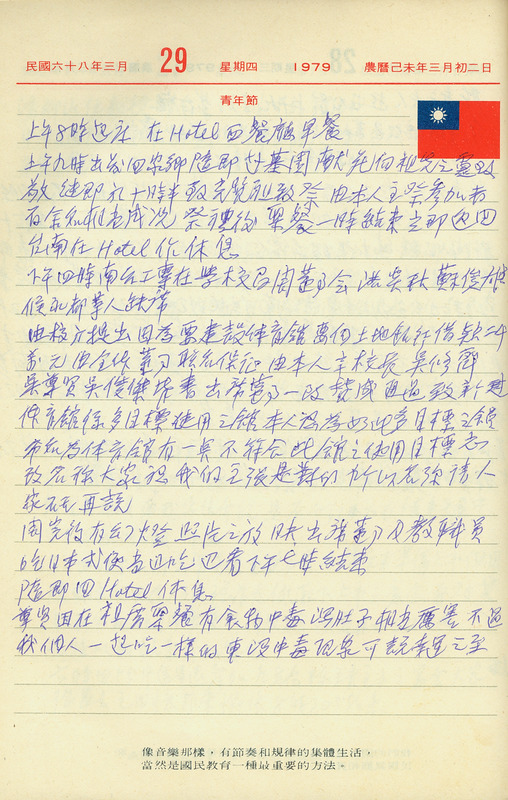 民國六十八年三月 29 星期四 1979 農曆己未年三月初二日
青年節
上午8時起床 在Hotel西餐廳早餐
上午九時出發回 鄉 隨即 墓園獻花向祖先之靈致
敬 繼即於十時半 致祭 由本人主祭參加者
百餘 相當盛況 祭禮後 聚餐一時結束 立即返回
台南在Hotel作休息
下午四時南台工專在學校召開董事會 洪 吳秋 蘇俊雄
侯 都 人缺席
由校方提出因為要建設体育館要向土地銀行借款二千
萬元由全体董事聯名保証 由本人 辛校長 吳修齊
吳尊賢 吳俊傑 出席董事一致贊成通過 致新建
体育館係多目標使用之館本人認為如此多目標之館
命名為体育館有一點不符合此館之使用目標
改名称大家認我們主張是對的 所以名称請人
家 再說
開完後有幻燈照片之放映出席董事及教職員
吃日本式便當邊吃邊看下午七時結束
隨即回Hotel休息
尊賢因在祖厝聚餐有食物中毒瀉肚子相當厲害 不過
我個人一起吃一樣的東 沒中毒現象可說幸運之至
像音樂那樣,有節奏和規律的集體生活,
當然是國民教育一種最重要的方法。